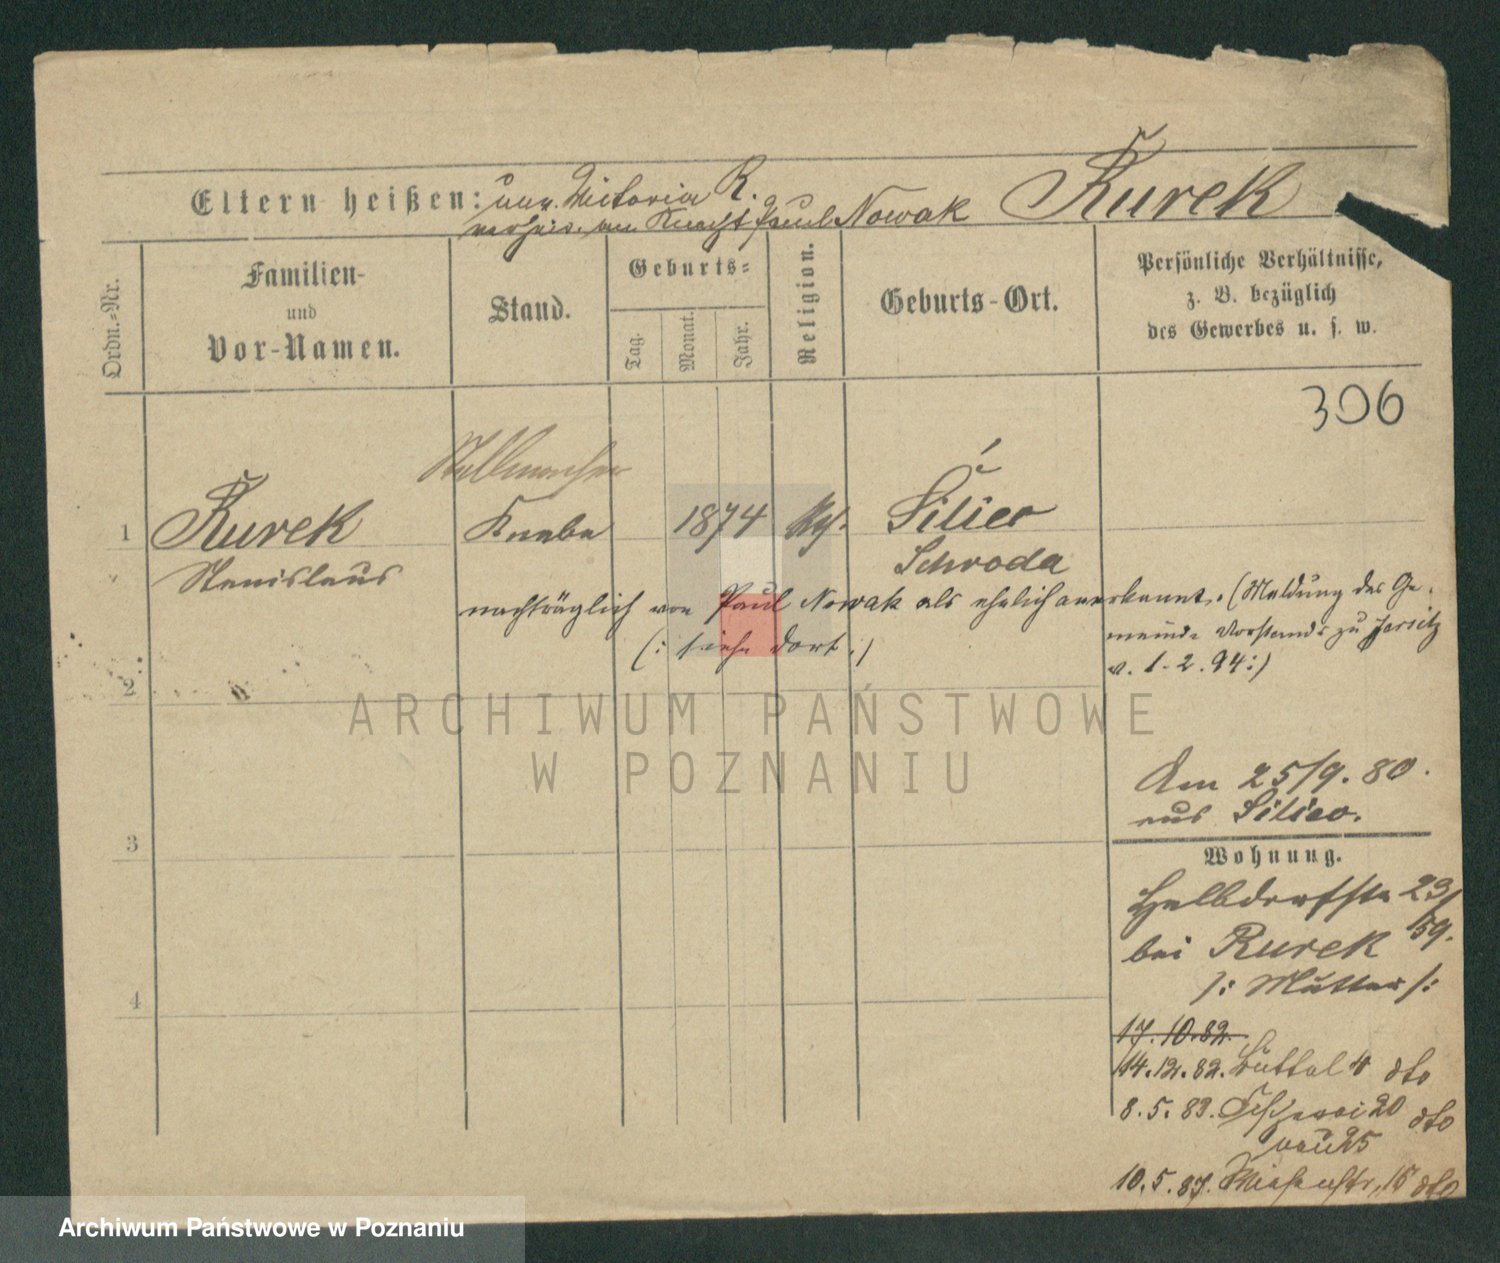 Eltern heißen: unv. Victoria R. Kurek
verheir. an Knecht Paul Nowak
Ordn.-Nr.
Familien-
und
Vor-Namen.
Stand.
Geburts-
Tag.
Monat.
Jahr.
Religion.
Geburts-Ort.
Persönliche Verhältnisse,
z. B. bezüglich
des Gewerbes u. s. w.
306
Stellmacher
1 Kurek Knabe 1874 Siliec
Stanislaus Schroda
nachträglich von Paul Nowak als ehelich anerkannt. (Meldung des Ge-
(: siehe dort :) meinde Vorstands zu Jersitz
v. 1-2.94:)
2
ARCHIWUM PAŃSTWOWE
W POZNANIU
Am 25/9. 80.
aus Siliec.
3
Wohnung.
Halbdorfstr 23/
59.
bei Kurek
/: Mutter /:
4
17.10.82.
14.12.82. 4 dto
8.5.83. 20 dto
neu 25
10.5.87. Wiesenstr. 15 dto
Archiwum Państwowe w Poznaniu